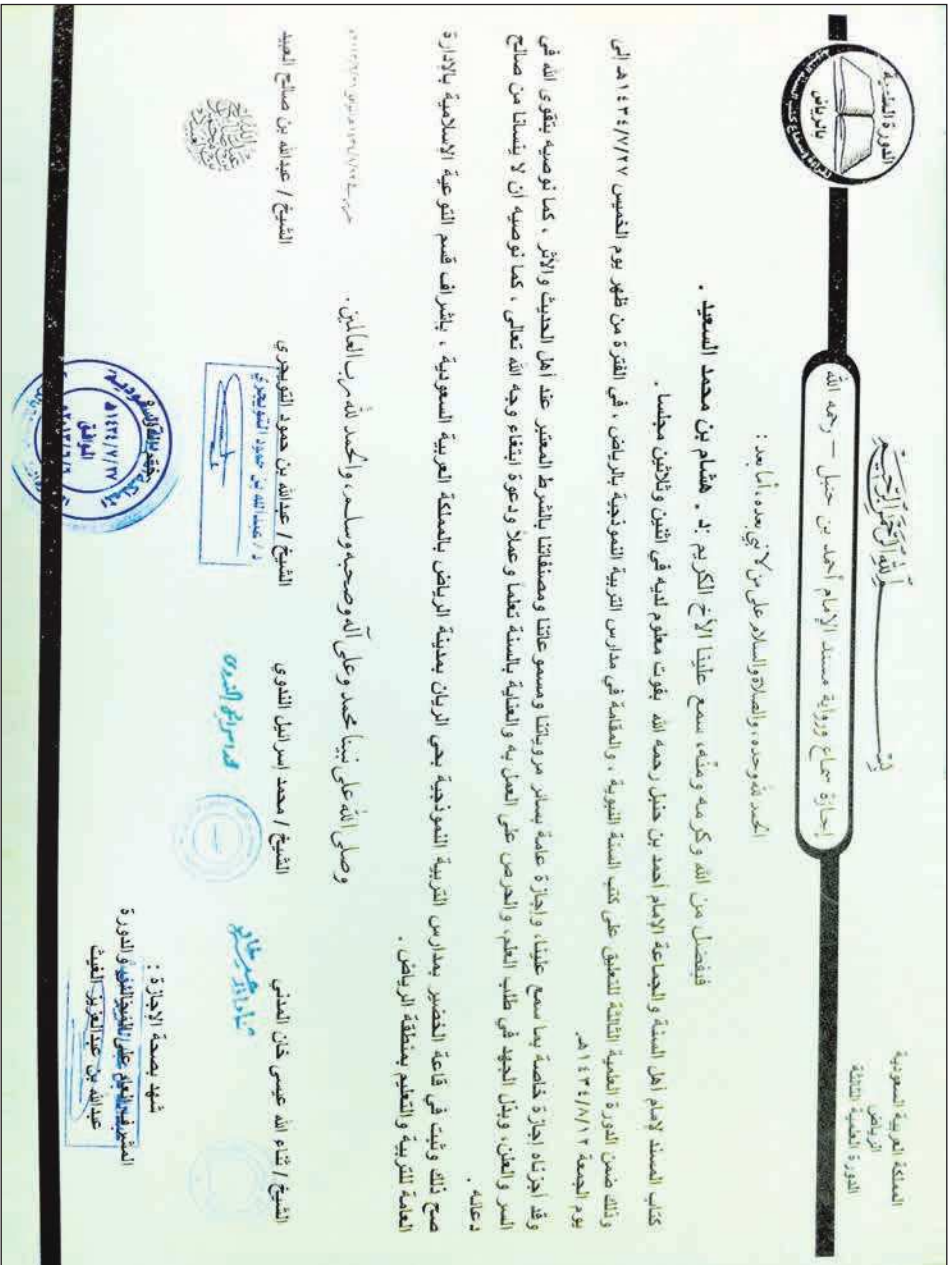 المملكة العربية السعودية
الرياض
الدورة العلمية الثالثة
بسم الله الرحمن الرحيم
الدورة العلمية
بالرياض
لقراءة وسماع كتب السنة النبوية
إجازة سماع ورواية مسند الإمام أحمد بن حنبل – رحمه الله
الحمد لله وحده، والصلاة والسلام على من لا نبي بعده، أما بعد :
فبفضل من الله وكرمه ومنّه، سمع علينا الأخ الكريم : د . هشام بن محمد السعيد .
كتاب المسند لإمام أهل السنة والجماعة الإمام أحمد بن حنبل رحمه الله بفوت معلوم لديه في اثنين وثلاثين مجلسا .
وذلك ضمن الدورة العلمية الثالثة للتعليق على كتب السنة النبوية ، والمقامة في مدارس التربية النموذجية بالرياض ، في الفترة من ظهر يوم الخميس ١٤٣٤/٧/٢٧ هـ إلى
يوم الجمعة ١٤٣٤/٨/١٢ هـ.
وقد أجزناه إجازة خاصة بما سمع علينا، وإجازة عامة بسائر مروياتنا ومسموعاتنا ومصنفاتنا بالشرط المعتبر عند أهل الحديث والأثر ، كما نوصيه بتقوى الله في
السر والعلن، وبذل الجهد في طلب العلم، والحرص على العمل به والعناية بالسنة تعلماً وعملاً ودعوة ابتغاء وجه الله تعالى ، كما نوصيه ان لا ينسانا من صالح
دعائه .
صح ذلك وثبت في قاعة الخضير بمدارس التربية النموذجية بحي الريان بمدينة الرياض بالمملكة العربية السعودية ، باشراف قسم التوعية الإسلامية بالإدارة
العامة للتربية والتعليم بمنطقة الرياض .
وصلى الله على نبينا محمد وعلى آله وصحبه وسلم، والحمد لله رب العالمين .
الشيخ / ثناء الله عيسى خان المدني
الشيخ / محمد إسرائيل الندوي
الشيخ / عبدالله بن حمود التويجري
الشيخ / عبدالله بن صالح العبيد
محمد اسرائيل الندوي
د / عبدالله بن حمود التويجري
١٤٣٤/٧/٢٧هـ
الموافق
٢٠١٣/٦/٦
شهد بصحة الإجازة :
المشرف العام على البرنامج والدورة
عبدالله بن عبدالعزيز الغيث